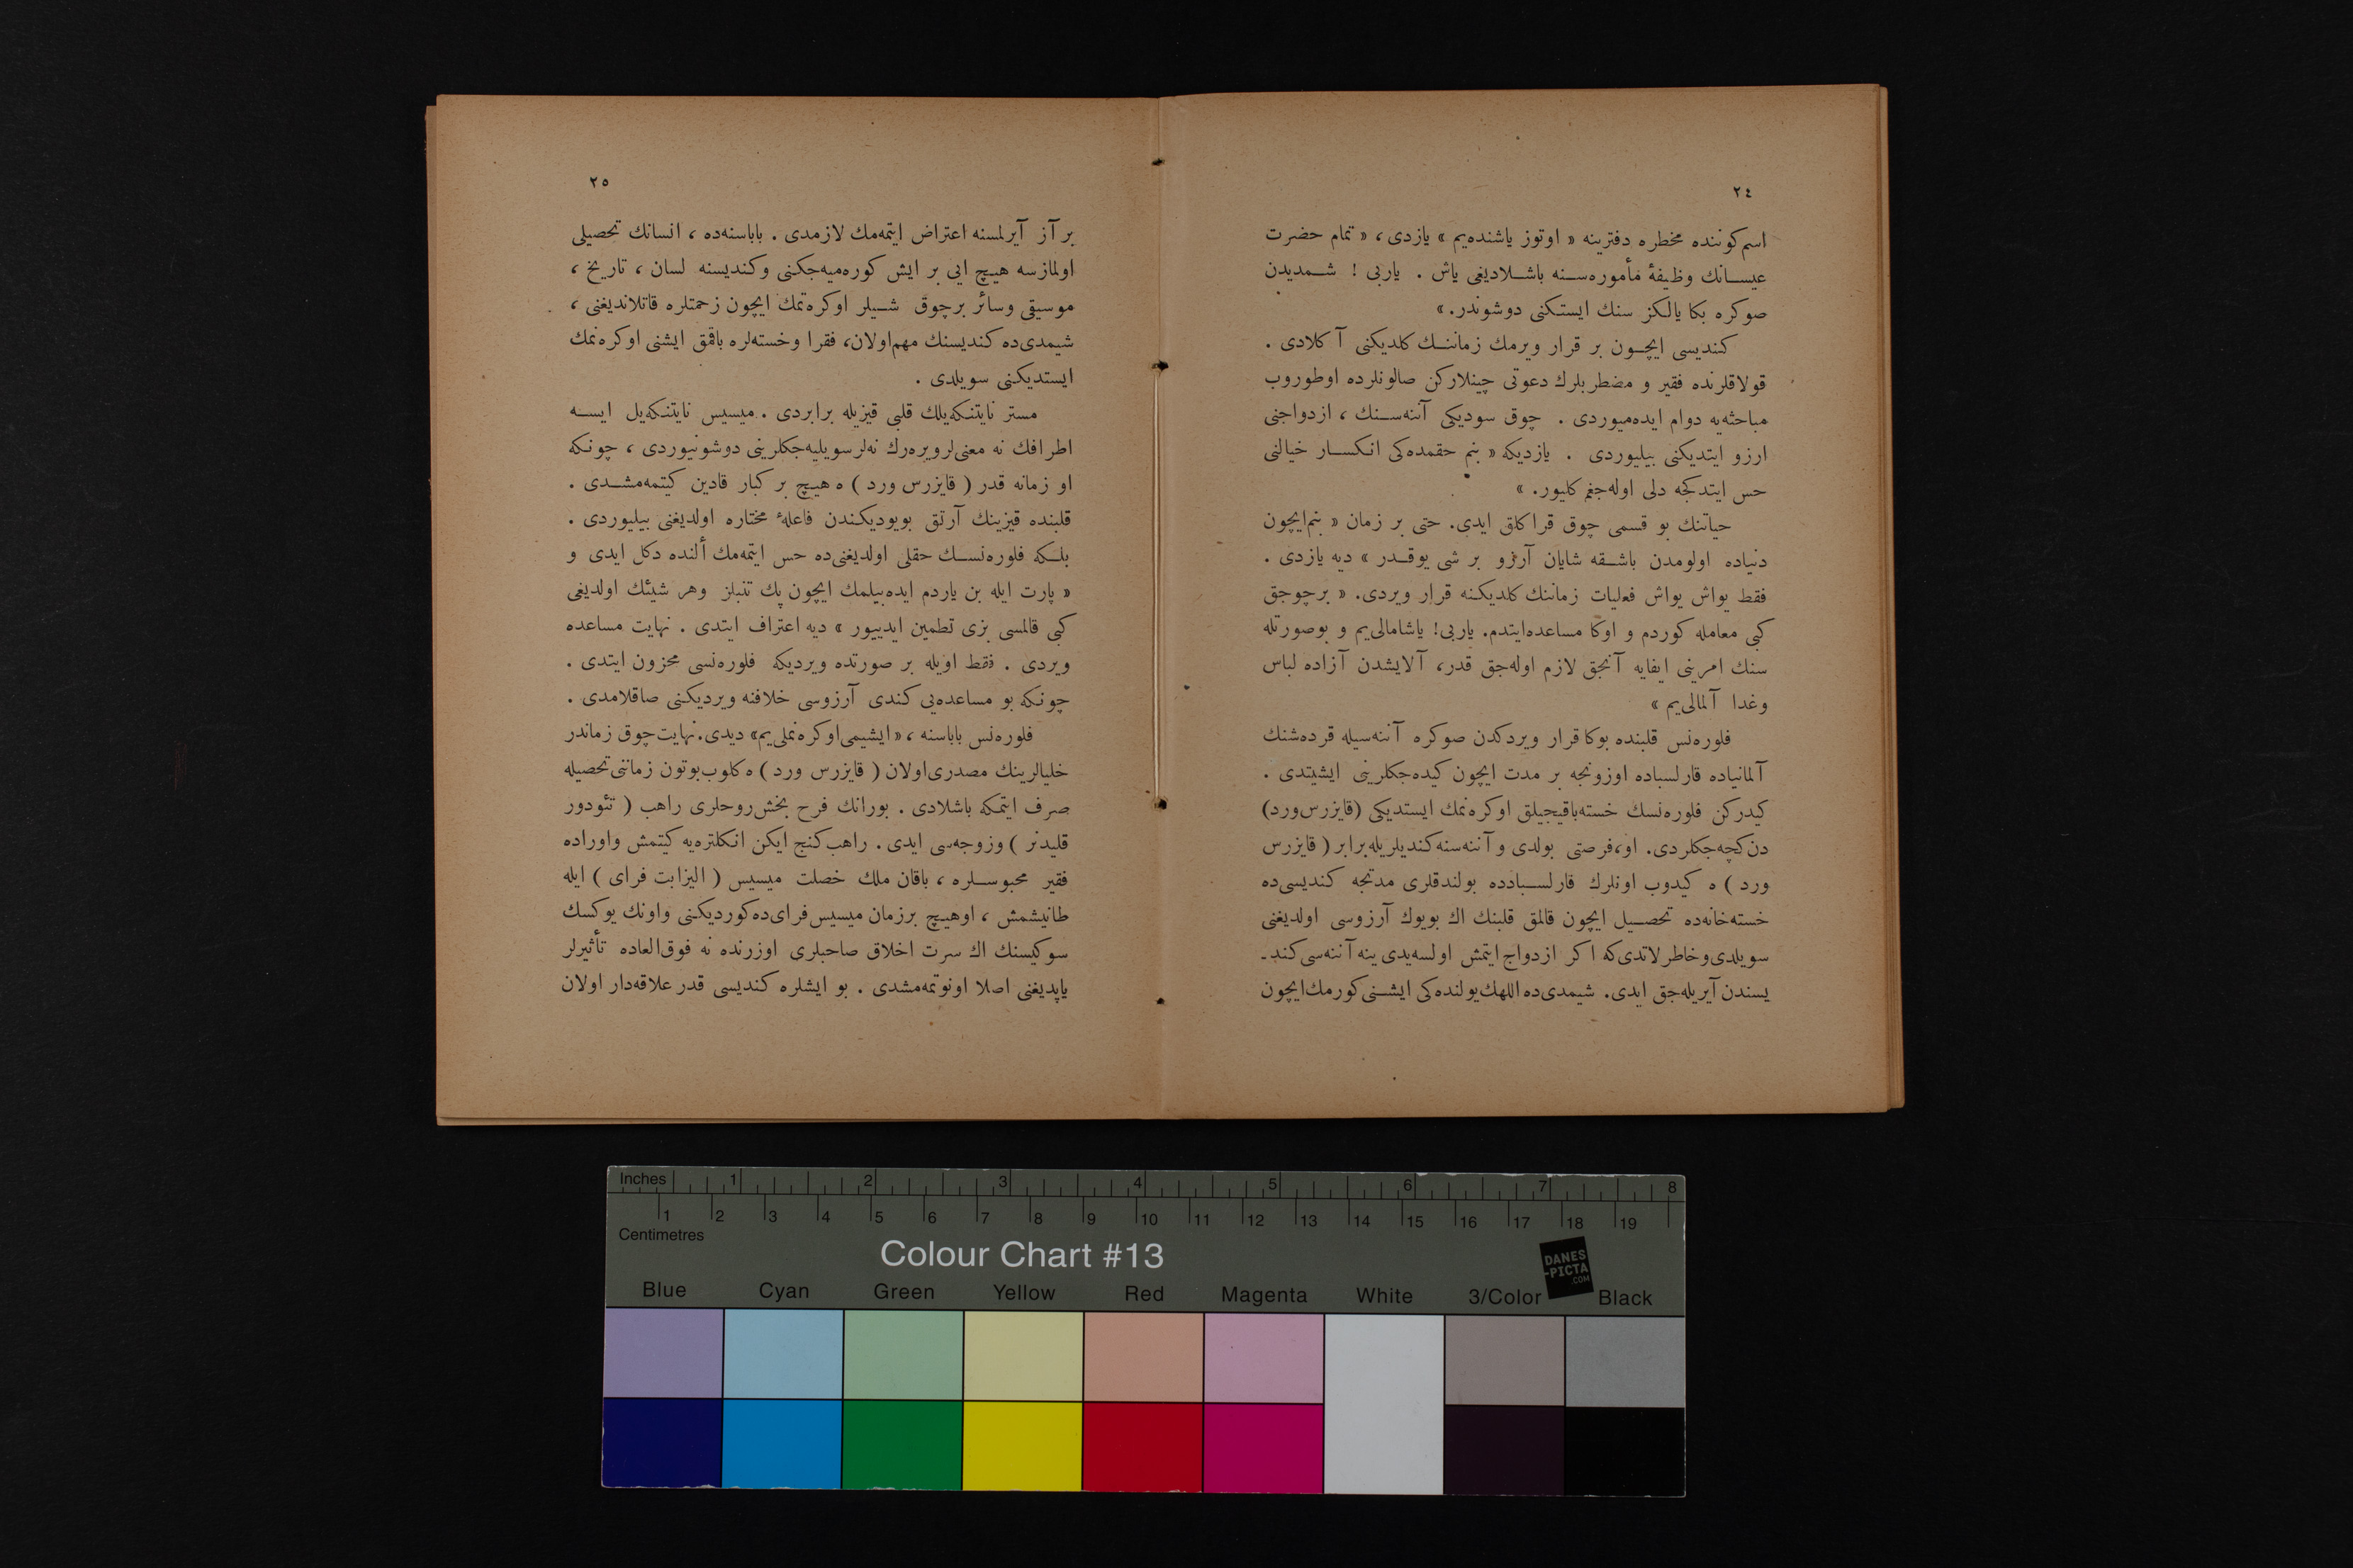 ٢٤
اسم كوننده مخطره دفترينه « اوتوز ياشنده‌يم » يازدى ، « تمام حضرت
عيسـانك وظيفۀ مأموره‌سـنه باشـلاديغى ياش . ياربى ! شـمديدن
صوكره بكا يالكز سنك ايستكنى دوشوندر. »
كنديسى ايچـون بر قرار ويرمك زماننـك كلديكنى آكلادى .
قولاقلرنده فقير و مضطربلرك دعوتى چينلاركن صالونلرده اوطوروب
مباحثه‌يه دوام ايده‌ميوردى . چوق سوديكى آننه‌سـنك ، ازدواجنى
ارزو ايتديكنى بيليوردى . يازديكه « بنم حقمده‌كى انكسـار خيالنى
حس ايتدكجه دلى اوله‌جغم كليور. »
حياتنك بو قسمى چوق قراكلق ايدى. حتى بر زمان « بنم‌ايچون
دنياده اولومدن باشـقه شايان آرزو بر شى يوقـدر » ديه يازدى .
فقط يواش يواش فعليات زماننك كلديكنه قرار ويردى. « برچوجق
كبى معامله كوردم و اوكا مساعده‌ايتدم. ياربى! ياشامالى‌يم و بوصورتله
سنك امرينى ايفايه آنجق لازم اوله‌جق قدر، آلايشدن آزاده لباس
وغدا آلمالى‌يم »
فلوره‌نس قلبنده بوكا قرار ويردكدن صوكره آننه‌سيله قرده‌شنك
آلمانياده قارلسباده اوزونجه بر مدت ايچون كيده‌جكلرينى ايشيتدى .
كيدركن فلوره‌نسك خسته‌باقيجيلق اوكره‌نمك ايستديكى (قايزرس‌ورد)
دن كچه‌جكلردى. او،فرصتى بولدى و آننه‌سنه كنديلريله برابر ( قايزرس
ورد ) ه كيدوب اونلرك قارلسـبادده بولندقلرى مدتجه كنديسى‌ده
خسته‌خانه‌ده تحصـيل ايچون قالمق قلبنك اك بويوك آرزوسى اولديغى
سويلدى‌وخاطرلاتدى‌كه اكر ازدواج ايتمش اولسه‌يدى ينه آننه‌سى كند ـ
يسندن آيريله‌جق ايدى. شيمدى‌ده اللهك يولنده‌كى ايشـنى كورمك ايچون
٢٥
بر آز آيرلمسنه اعتراض ايتمه‌مك لازمدى . باباسنه‌ده ، انسانك تحصيلى
اولمازسه هيچ ايى بر ايش كوره‌ميه‌جكنى وكنديسنه لسان ، تاريخ ،
موسيقى وسائر برچوق شـيلر اوكره‌تمك ايچون زحمتلره قاتلانديغنى ،
شيمدى‌ده كنديسنك مهم‌اولان، فقرا وخسته‌لره باقمق ايشنى اوكره‌نمك
ايستديكنى سويلدى .
مستر نايتنكه‌يلك قلبى قيزيله برابردى . ميسيس نايتنكه‌يل ايسـه
اطرافك نه معنى‌لرويره‌رك نه‌لرسويليه‌جكلرينى دوشونيوردى ، چونكه
او زمانه قدر ( قايزرس ورد ) ه هيچ بر كبار قادين كيتمه‌مشـدى .
قلبنده قيزينك آرتق بويوديكندن فاعلۀ مختاره اولديغنى بيليوردى .
بلـكه فلوره‌نسـك حقلى اولديغنى‌ده حس ايتمه‌مك ألنده دكل ايدى و
« پارت ايله بن ياردم ايده‌بيلمك ايچون پك تنبلز وهر شيئك اولديغى
كبى قالمسى بزى تطمين ايدييور » ديه اعتراف ايتدى . نهايت مساعده
ويردى . فقط اويله بر صورتده ويرديكه فلوره‌نسى محزون ايتدى .
چونكه بو مساعده‌يى كندى آرزوسى خلافنه ويرديكنى صاقلامدى .
فلوره‌نس باباسنه ، « ايشيمى‌اوكره‌نملى‌يم» ديدى. نهايت چوق زماندر
خليالرينك مصدرى‌اولان ( قايزرس ورد ) ه كلوب بوتون زماننى تحصيله
صرف ايتمكه باشلادى . بورانك فرح بخش‌روحلرى راهب ( تئودور
قليدنر ) وزوجه‌سى ايدى . راهب كنج ايكن انكلتره‌يه كيتمش واوراده
فقير محبوسـلره ، باقان ملك خصلت ميسيس ( اليزابت فراى ) ايله
طانيشمش ، اوهيچ برزمان ميسيس فراى‌ده كورديكنى واونك يوكسك
سوكيسنك اك سرت اخلاق صاحبلرى اوزرنده نه فوق‌العاده تأثيرلر
ياپديغنى اصلا اونوتمه‌مشدى . بو ايشلره كنديسى قدر علاقه‌دار اولان
Inches 1 2 3 4 5 6 7 8
1 2 3 4 5 6 7 8 9 10 11 12 13 14 15 16 17 18 19
Centimetres
Colour Chart #13
DANES
-PICTA
.COM
Blue Cyan Green Yellow Red Magenta White 3/Color Black